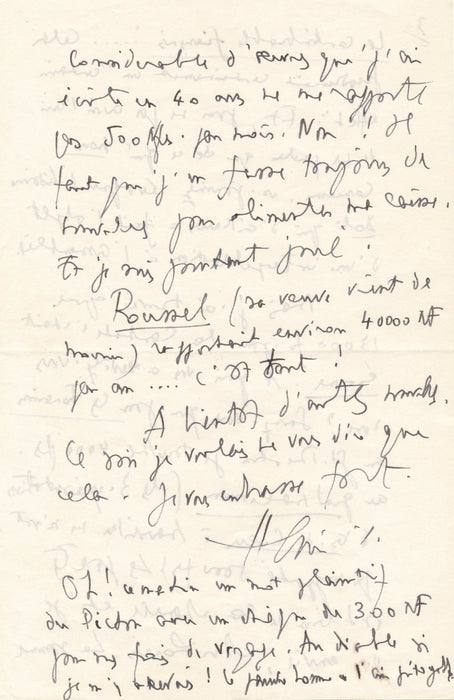 Considérable d'œuvres que j'ai
écrite en 40 ans ne me rapporte
pas 500 NFs. par mois. Non ! Il
faut que j'en fasse toujours de
nouvelles pour alimenter ma caisse.
Et je suis pourtant joué !
Roussel (sa veuve vient de
mourir) rapportait environ 40000 NF
par an .... c'est tout !
A bientôt d'autres nouvelles.
Ce soir je voulais ne vous dire que
cela. Je vous embrasse fort.
Oh ! ce matin un mot plaintif
du Picton avec un chèque de 300 NF
pour mes frais de voyage. Au diable si
je m'y attendais ! Le pauvre homme a l'air